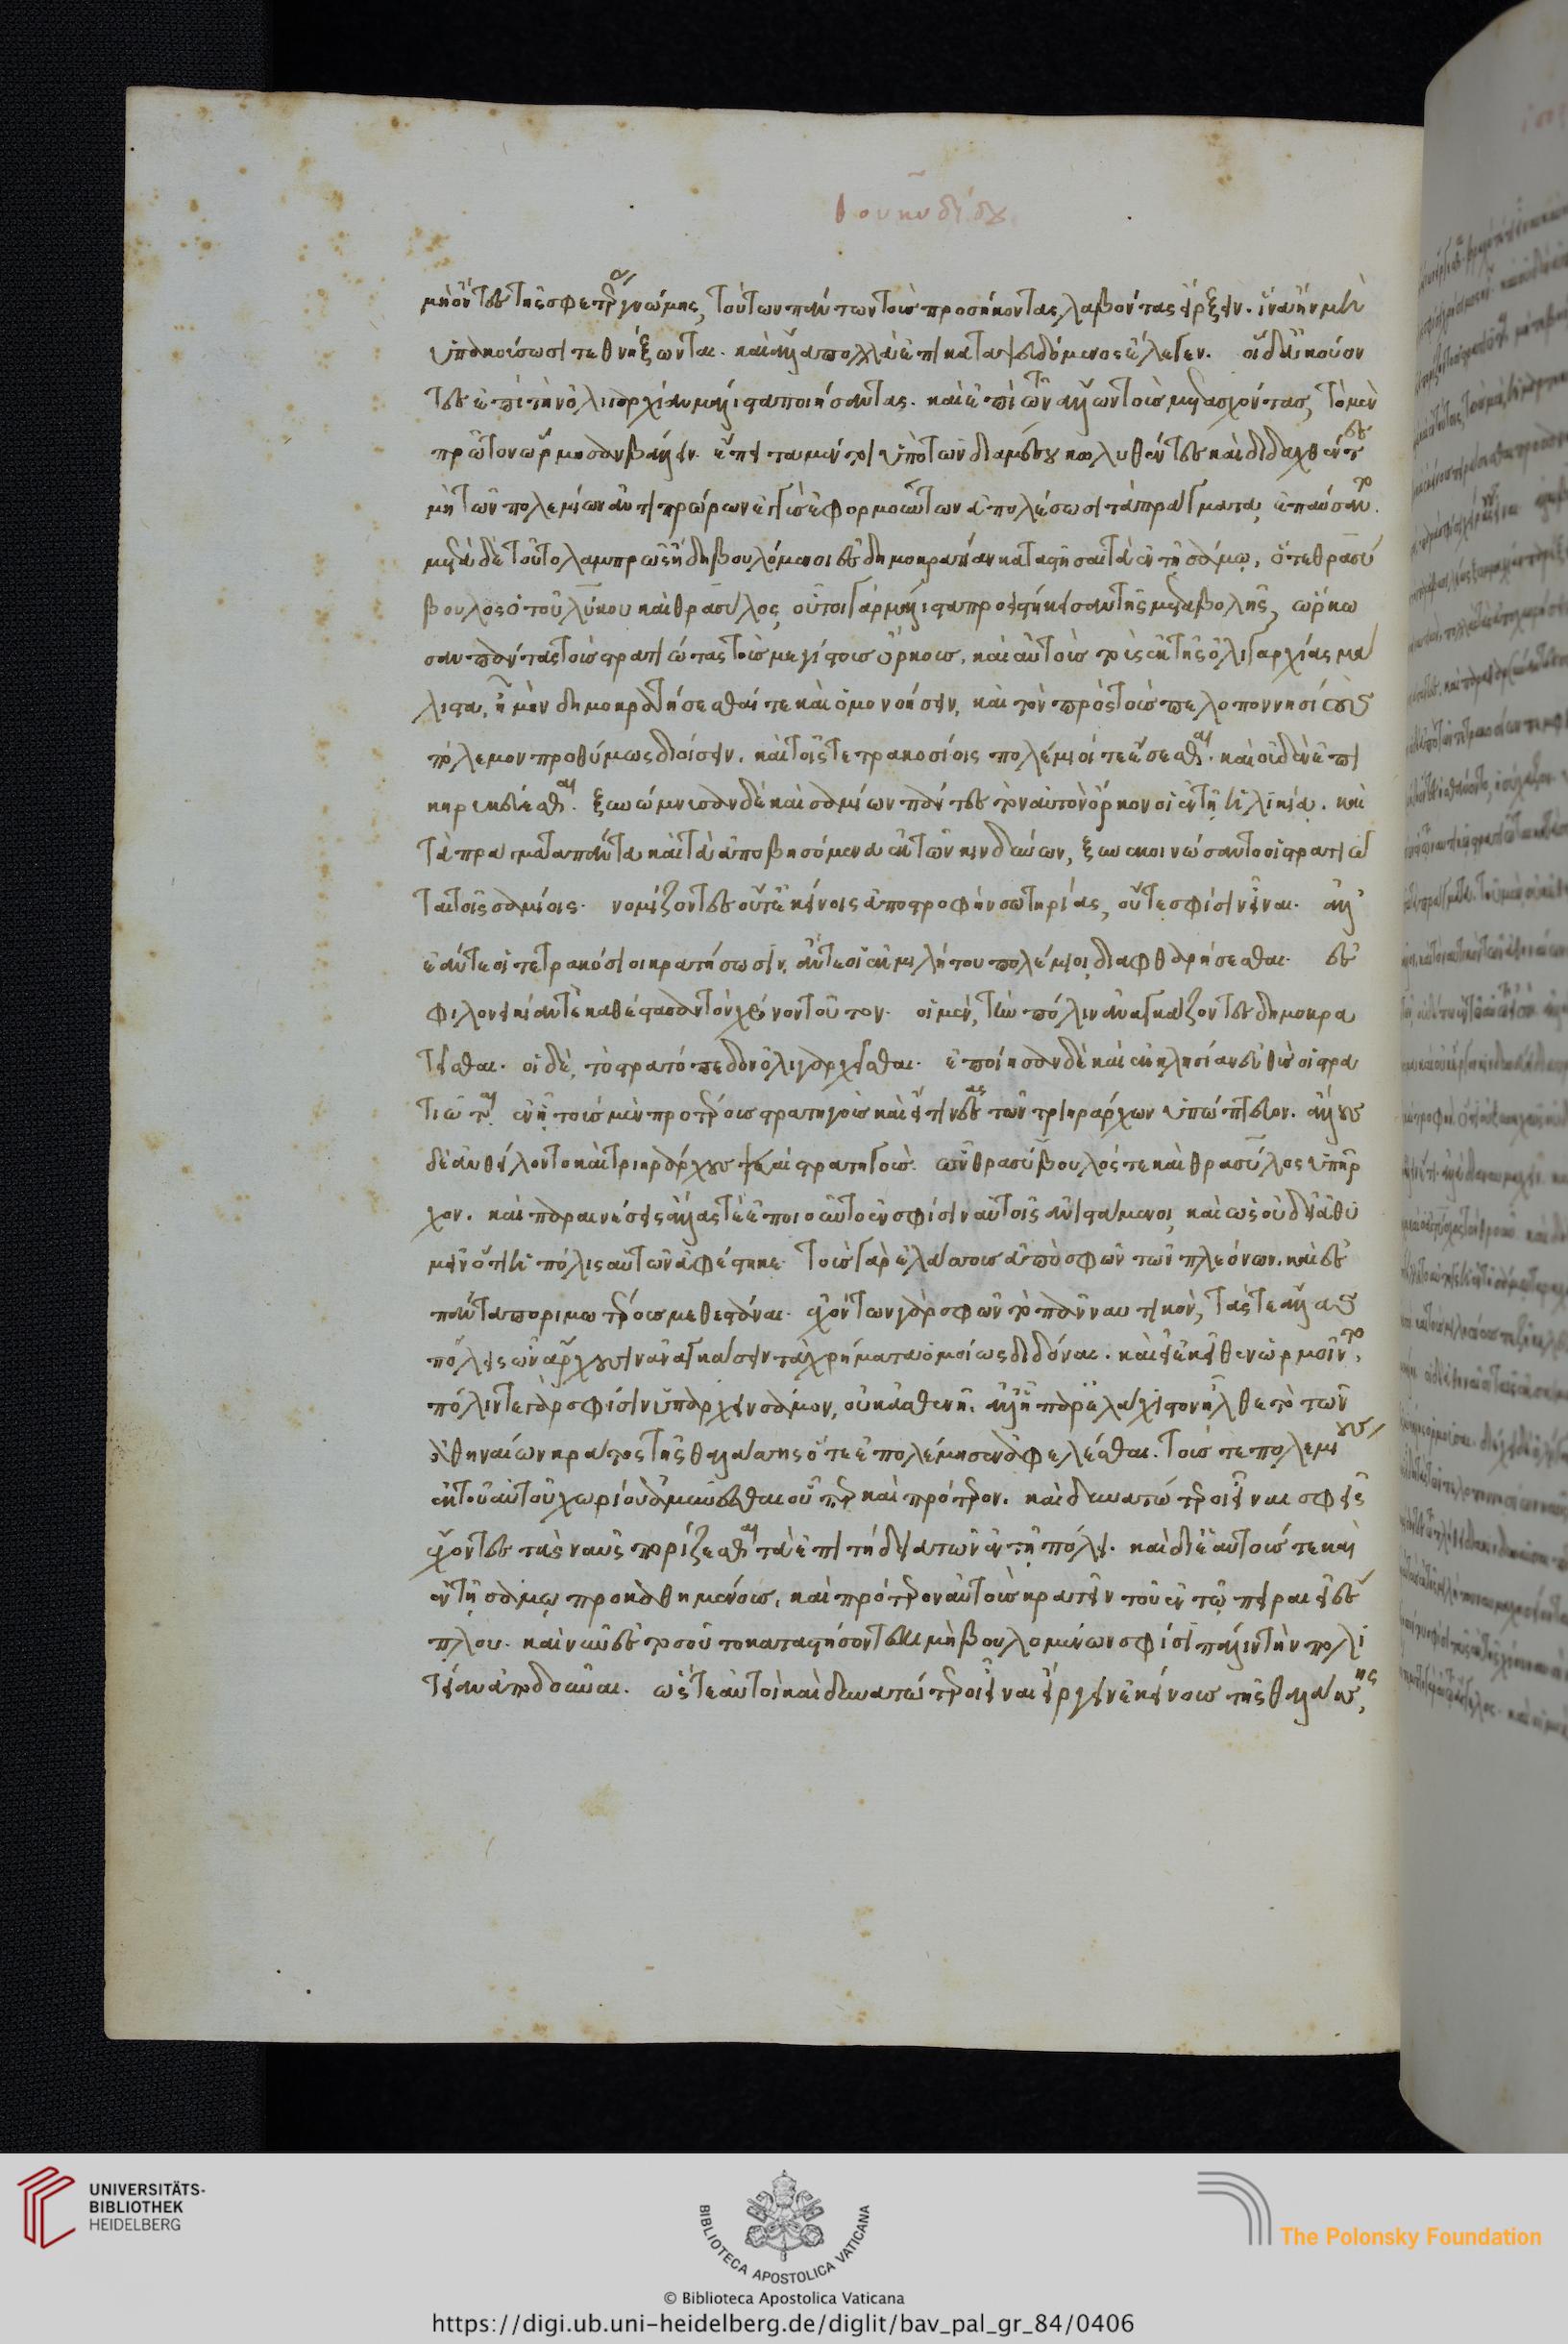 θουκυδίδου
μὴ ὄντες τῆς σφετέρας γνώμης, τούτων πάντων τοὺς προσήκοντας λαβόντας εἴρξειν. ἵνα ἢν μὴ
ὑπακούσωσι τεθνήξωνται. καὶ ἄλλα πολλὰ ἐπικαταψευδόμενος ἔλεγεν. οἱ δὲ ἀκούον
τες ἐπὶ τὴν ὀλιγαρχίαν μάλιστα ποιήσαντας. καὶ ἐπὶ τῶν ἄλλων τοὺς μετασχόντας, τὸ μὲν
πρῶτον ὥρμησαν βάλλειν. ἔπειτα μέντοι ὑπὸ τῶν διαμέσου κωλυθέντες καὶ διδαχθέντες
μὴ τῶν πολεμίων ἀντιπρώρων ἐγγὺς ἐφορμούντων ἀπολέσωσι τὰ πράγματα, ἐπαύσαντο.
μετὰ δὲ τοῦτο λαμπρῶς ἤδη βουλόμενοι ἐς δημοκρατίαν καταστῆσαι τὰ ἐν τῇ σάμῳ, ὅ τε θρασύ
βουλος ὁ τοῦ λύκου καὶ θράσυλος, οὗτοι γὰρ μάλιστα προειστήκεισαν τῆς μεταβολῆς, ὥρκω
σαν πάντας τοὺς στρατιώτας τοὺς μεγίστους ὅρκους, καὶ αὐτοὺς τοὺς ἐκ τῆς ὀλιγαρχίας μά
λιστα, ἦ μὴν δημοκρατήσεσθαί τε καὶ ὁμονοήσειν, καὶ τὸν πρὸς τοὺς πελοποννησίους
πόλεμον προθύμως διοίσειν. καὶ τοῖς τετρακοσίοις πολέμιοί τε ἔσεσθαι. καὶ οὐδὲν ἐπι
κηρυκεύεσθαι. ξυνώμνυσαν δὲ καὶ σαμίων πάντες τὸν αὐτὸν ὅρκον οἱ ἐν τῇ ἡλικίᾳ. καὶ
τὰ πράγματα πάντα καὶ τὰ ἀποβησόμενα ἐκ τῶν κινδύνων, ξυνεκοινώσαντο οἱ στρατιῶ
ται τοῖς σαμίοις. νομίζοντες οὔτε ἐκείνοις ἀποστροφὴν σωτηρίας, οὔτε σφίσιν εἶναι. ἀλλ'
ἐάν τε οἱ τετρακόσιοι κρατήσωσιν, ἄν τε οἱ ἐκ μιλήτου πολέμιοι, διαφθαρήσεσθαι. ἐς
φιλονεικίαν τε καθέστασαν τὸν χρόνον τοῦτον. οἱ μὲν, τὴν πόλιν ἀναγκάζοντες δημοκρα
τεῖσθαι. οἱ δὲ, τὸ στρατόπεδον ὀλιγαρχεῖσθαι. ἐποίησαν δὲ καὶ ἐκκλησίαν εὐθὺς οἱ στρα
τιῶται. ἐν ᾗ τοὺς μὲν προτέρους στρατηγοὺς καὶ εἴ τινας τῶν τριηράρχων ὑπώπτευον. ἄλλους
δὲ ἀνθείλοντο καὶ τριηράρχους καὶ στρατηγούς. ὧν θρασύβουλός τε καὶ θράσυλος ὑπῆρ
χον. καὶ παραινέσεις ἄλλας τε ἐποιοῦντο ἐν σφίσιν αὐτοῖς ἀνιστάμενοι, καὶ ὡς οὐ δεῖ ἀθυ
μεῖν ὅτι ἡ πόλις αὐτῶν ἀφέστηκε. τοὺς γὰρ ἐλάσσους ἀπὸ σφῶν τῶν πλεόνων. καὶ ἐς
πάντα ποριμωτέρους μεθεστάναι. ἐχόντων γὰρ σφῶν τὸ πᾶν ναυτικὸν, τάς τε ἄλλας
πόλεις ὧν ἄρχουσιν ἀναγκάσειν τὰ χρήματα ὁμοίως διδόναι. καὶ εἰ ἐκεῖθεν ὡρμοῦντο.
πόλιν τε γὰρ σφίσιν ὑπάρχειν σάμον, οὐκ ἀσθενῆ. ἀλλ' ἢ παρ' ἐλάχιστον ἦλθε τὸ τῶν
ἀθηναίων κράτος τῆς θαλάσσης ὅτε ἐπολέμησεν ἀφελέσθαι. τούς τε πολεμίους
ἐκ τοῦ αὐτοῦ χωρίου ἀμύνεσθαι οὗπερ καὶ πρότερον. καὶ δυνατώτεροι εἶναι σφεῖς
ἔχοντες τὰς ναῦς πορίζεσθαι τὰ ἐπιτήδεια τῶν ἐν τῇ πόλει. καὶ δι' ἑαυτούς τε καὶ
ἐν τῇ σάμῳ προκαθημένους, καὶ πρότερον αὐτοὺς κρατεῖν τοῦ ἐν τῷ πειραιεῖ ἔς
πλου. καὶ νῦν ἐς τοσοῦτο καταστήσονται μὴ βουλομένων σφίσι πάλιν τὴν πολι
τείαν ἀποδοῦναι. ὥστε αὐτοὶ καὶ δυνατώτεροι εἶναι εἴργειν ἐκείνους τῆς θαλάσσης,
UNIVERSITÄTS-
BIBLIOTHEK
HEIDELBERG
BIBLIOTECA APOSTOLICA VATICANA
The Polonsky Foundation
© Biblioteca Apostolica Vaticana
https://digi.ub.uni-heidelberg.de/diglit/bav_pal_gr_84/0406